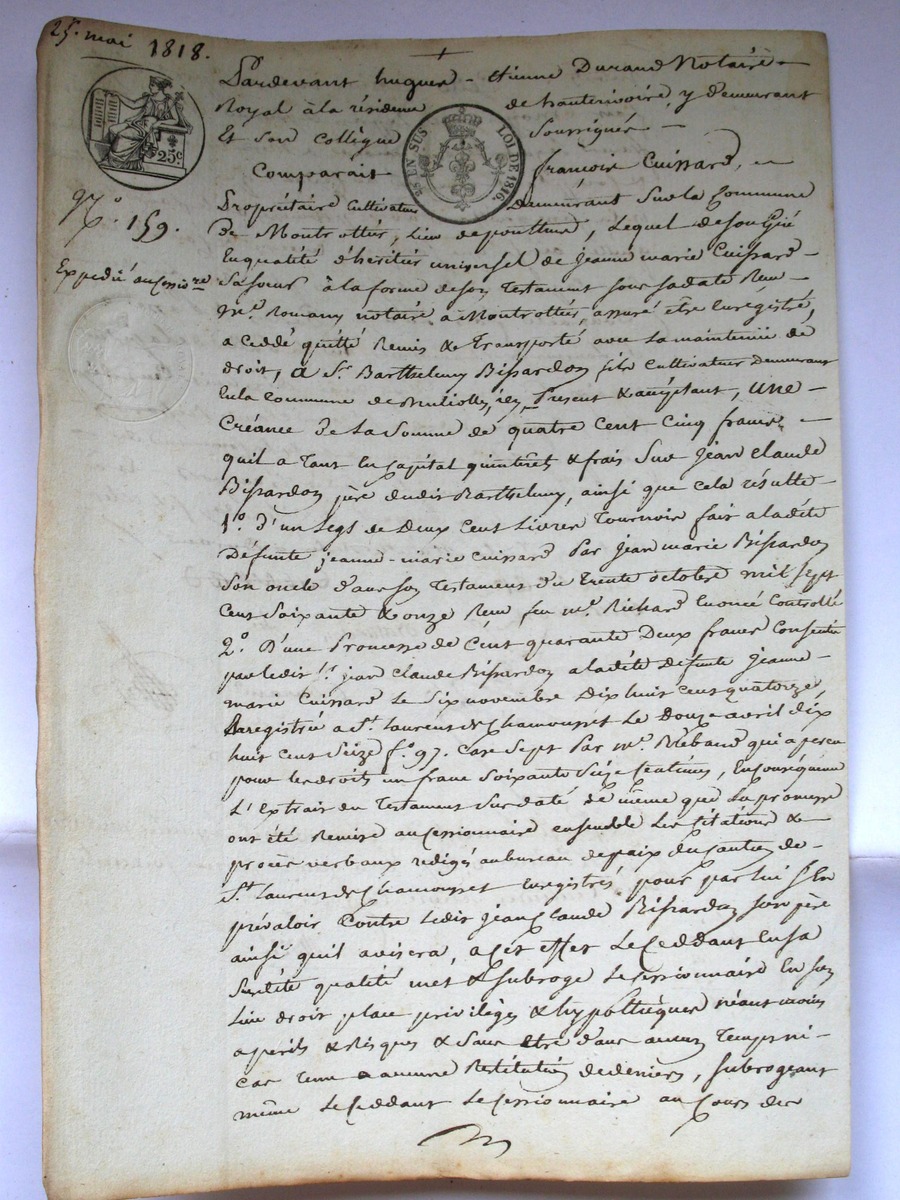 25. mai 1818.
25c.
EN SUS
LOI DE 1816.
N.° 159.
Expedié au Cessio.re
Pardevant hugues - etienne Durand Notaire -
Royal à la résidence de hauterivoire, y demeurant
Et son Collègue Soussignés -
Comparait françois Cuissard,
Propriétaire Cultivateur demeurant Sur la Commune
de Montrottier, Lieu de, Lequel de son Gré
En qualité d'héritier universel de Jeanne marie Cuissard -
Sa soeur à la forme de son Testament sous sa date Recu
M.e Romany notaire a Montrottier, assuré être Enregistré,
a Ceddé quitté Remis & Transporté avec la maintenüe de
droit, à S.r Barthelemy Bissardon fils Cultivateur Demeurant
En la Commune de, icy Present & acceptant, une -
Créance De la Somme de quatre Cent Cinq francs -
quil a Tant En Capital qu'interêts & frais Sur Jean Claude
Bissardon père dudit Barthelemy, ainsi que cela résulte
1.° d'un Legs de Deux Cent Livres Tournois fait a ladite
Défunte jeanne-marie Cuissard Par Jean marie Bissardon
Son oncle dans son Testament du Trente octobre mil sept
Cent Soixante & onze Recu feu m.e Richard Enoncé Controllé
2.° D'une Promesse de Cent quarante Deux francs Consentie
par ledit S.r jean Claude Bissardon a ladite défunte Jeanne -
marie Cuissard Le Six novembre Dix huit Cent quatorze,
Enregistrée a S.t Laurent de Chamousset Le Douze avril dix
huit Cent Seize f.° 97. Case Sept Par m.r qui a percu
pour les droits un franc Soixante Seize Centimes, En Conséquence
L'Extrait du Testament Susdaté de même que La promesse
ont été Remise au Cessionnaire ensemble Les Citations &
procès verbaux redigés au bureau de paix du Canton de -
S.t Laurent de Chamousset Enregistrés, pour par lui S'En
prévaloir Contre Ledit Jean Claude Bissardon Son père
ainsi quil avisera, a Cet effet Le Ceddant En sa
Susdite qualité met & Subroge Le Cessionnaire En son
Lieu droit place privilèges & hypothèques néant moins
a périls & Risques & Sans être dans aucun Temps ni -
Cas Tenu a aucune Restitution de deniers, Subrogeant
même Le Ceddant Le Cessionnaire au Cours des